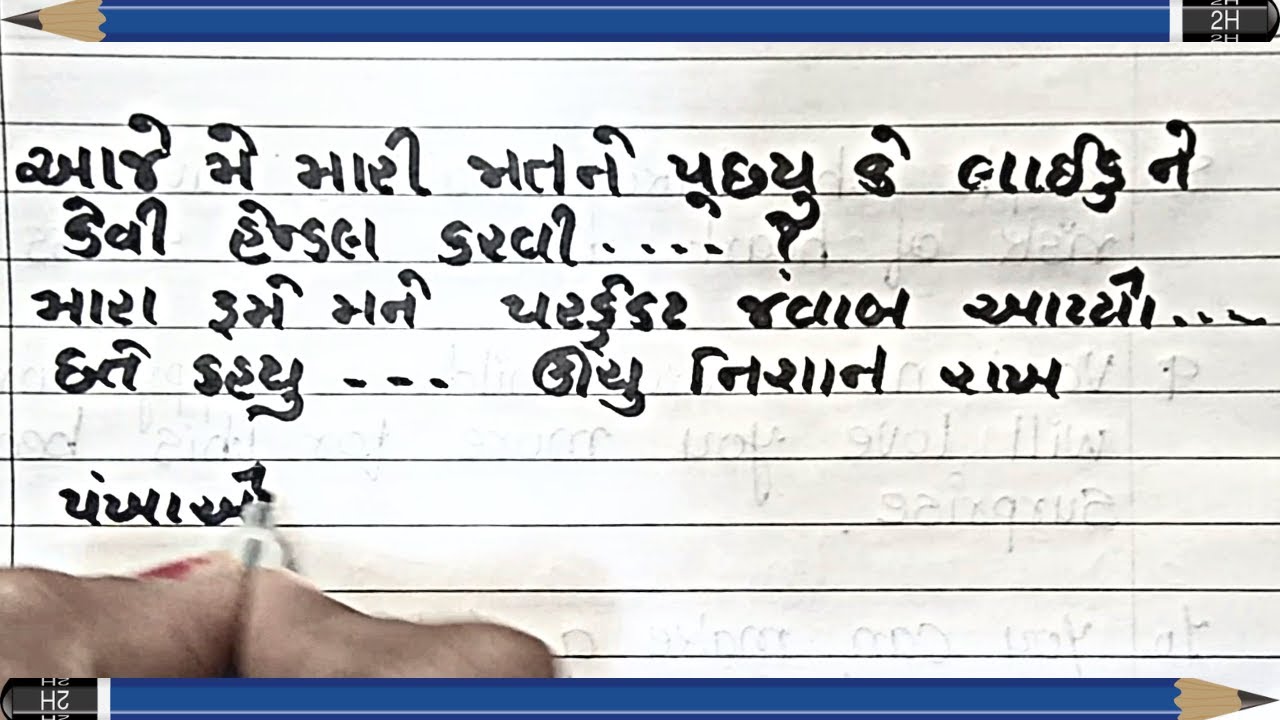 2H
આજે મે મારી જાતને પૂછયુ કે લાઈફ ને
કેવી હેન્ડલ કરવી.... ?
મારા રૂમે મને પરફેકટ જવાબ આપ્યો....
છતે કહયુ --- ઊંચુ નિશાન રાખ
પંખાએ
2H